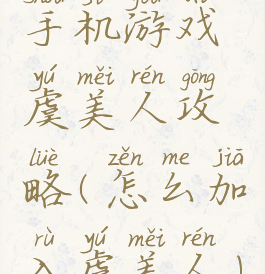 shǒu jī yóu xì
手机游戏
yú měi rén gōng
虞美人攻
lüè zěn me jiā
略(怎么加
rù yú měi rén
入虞美人)